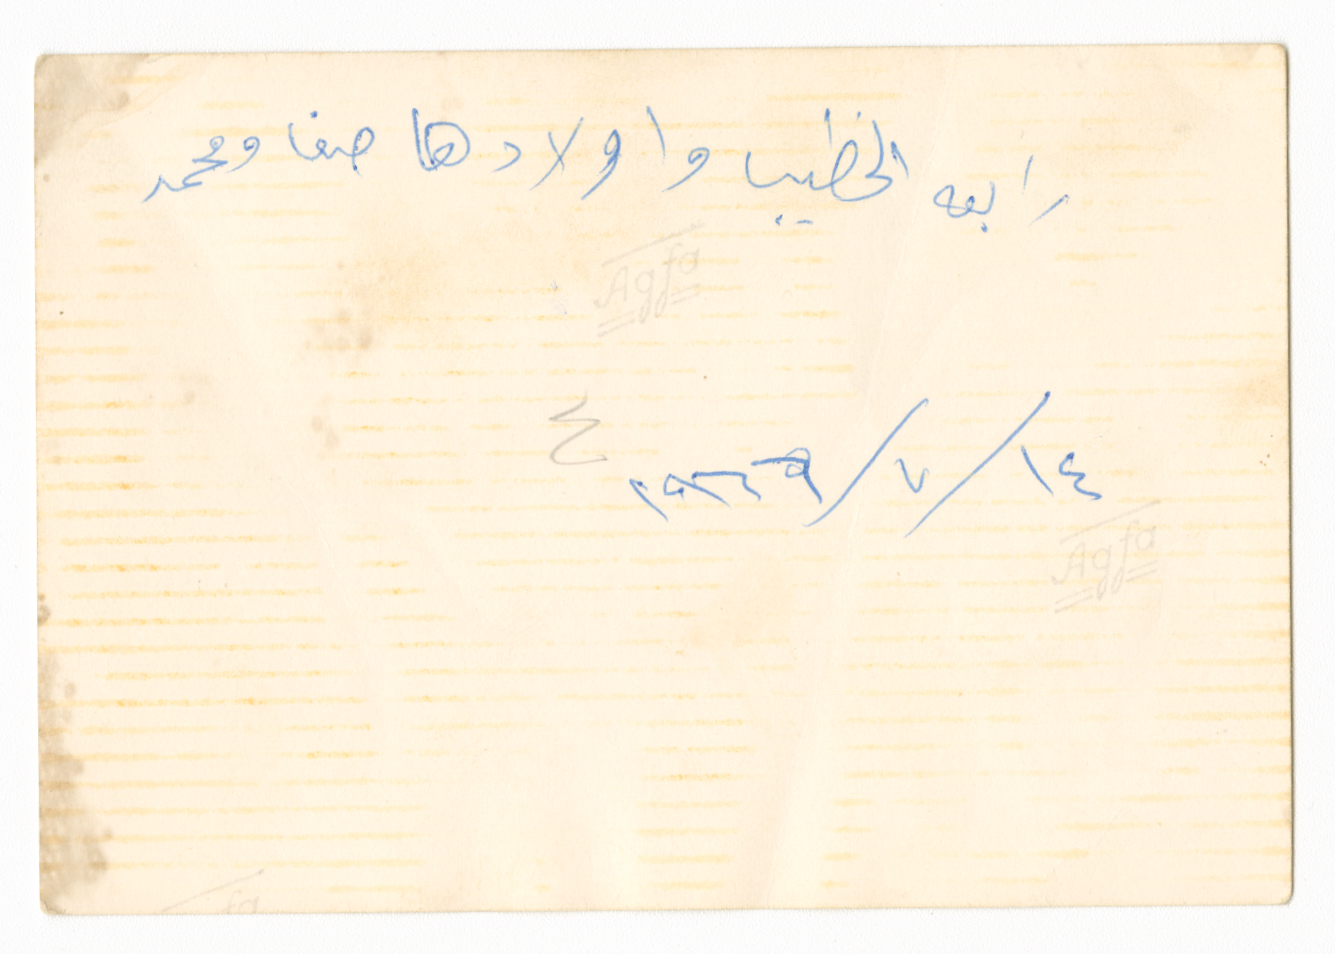 رابعه الخطيب واولادها صفا ومحمد
Agfa
٤
١٤/٧/١٩٦٩
Agfa
Agfa